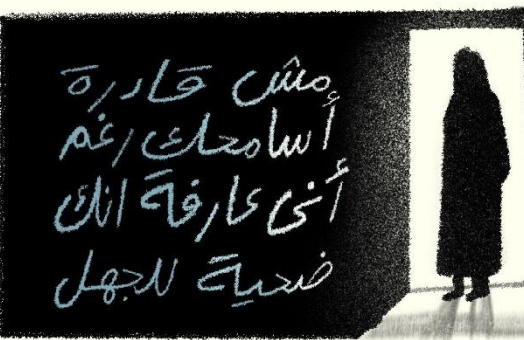 مش قادرة
أسامحك رغم
أني عارفة انك
ضحية للجهل